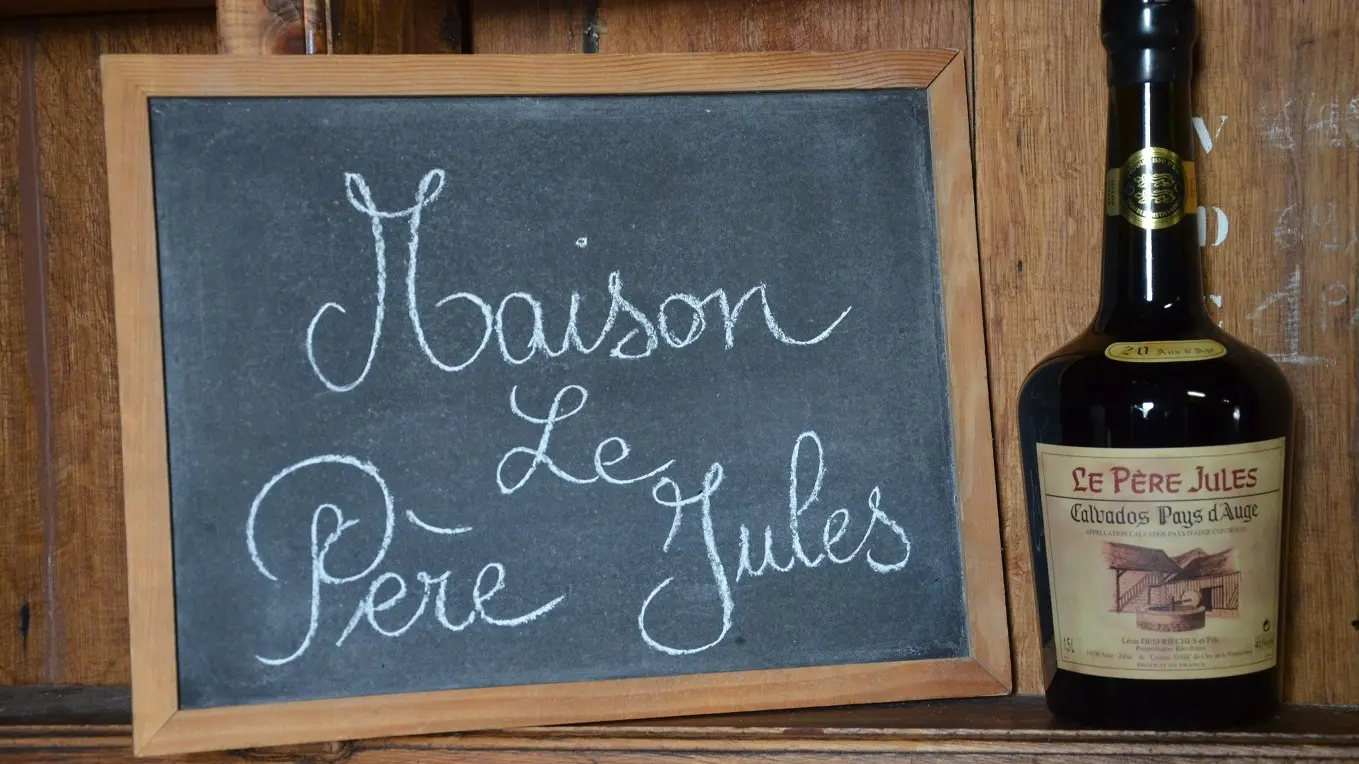 Maison
Le
Père Jules
20 Ans d'Age
LE PÈRE JULES
Calvados Pays d'Auge
APPELLATION CALVADOS PAYS D'AUGE CONTROLEE
Léon DESFRIÈCHES et Fils
Propriétaires Récoltants
1,5L
PRODUIT DE FRANCE
V
D